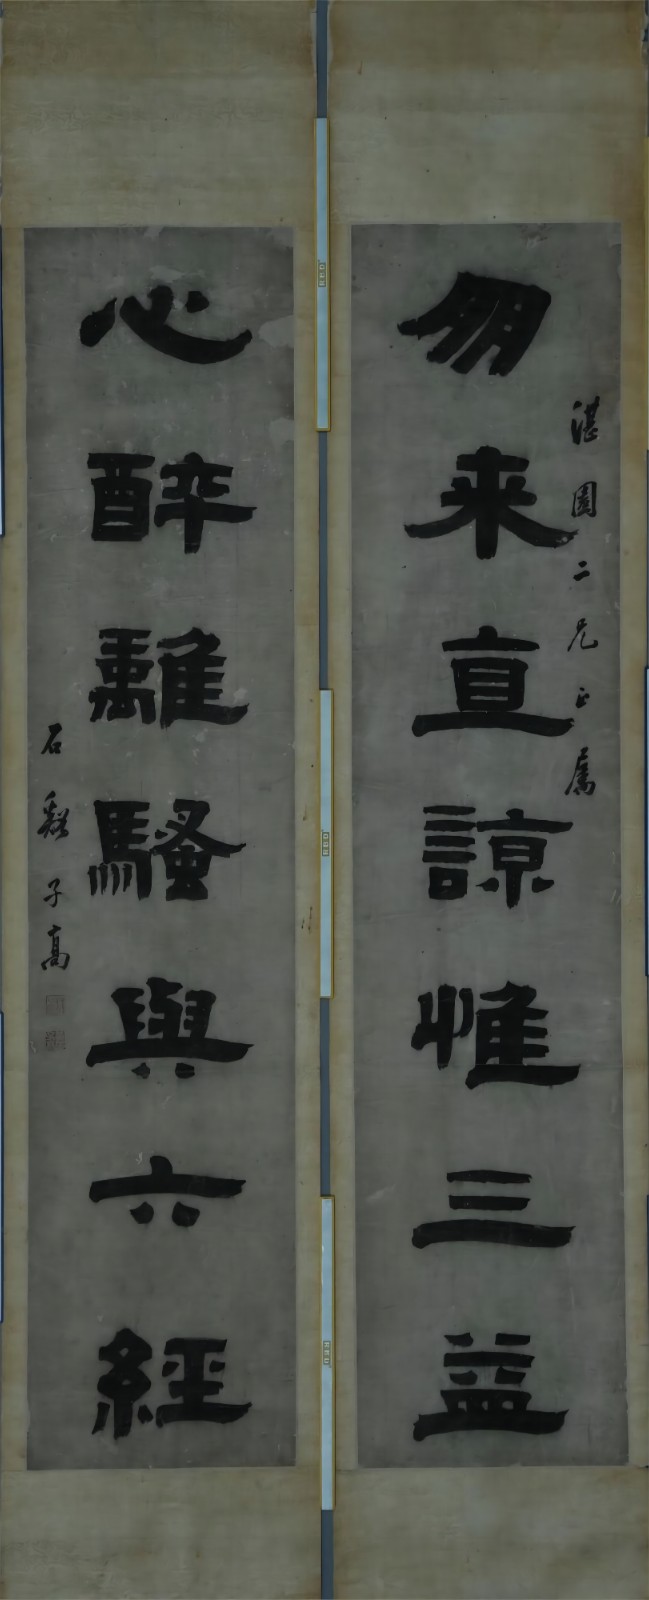 湛園二兄正屬
朋来直諒惟三益
心醉離騷與六經
石谿子高